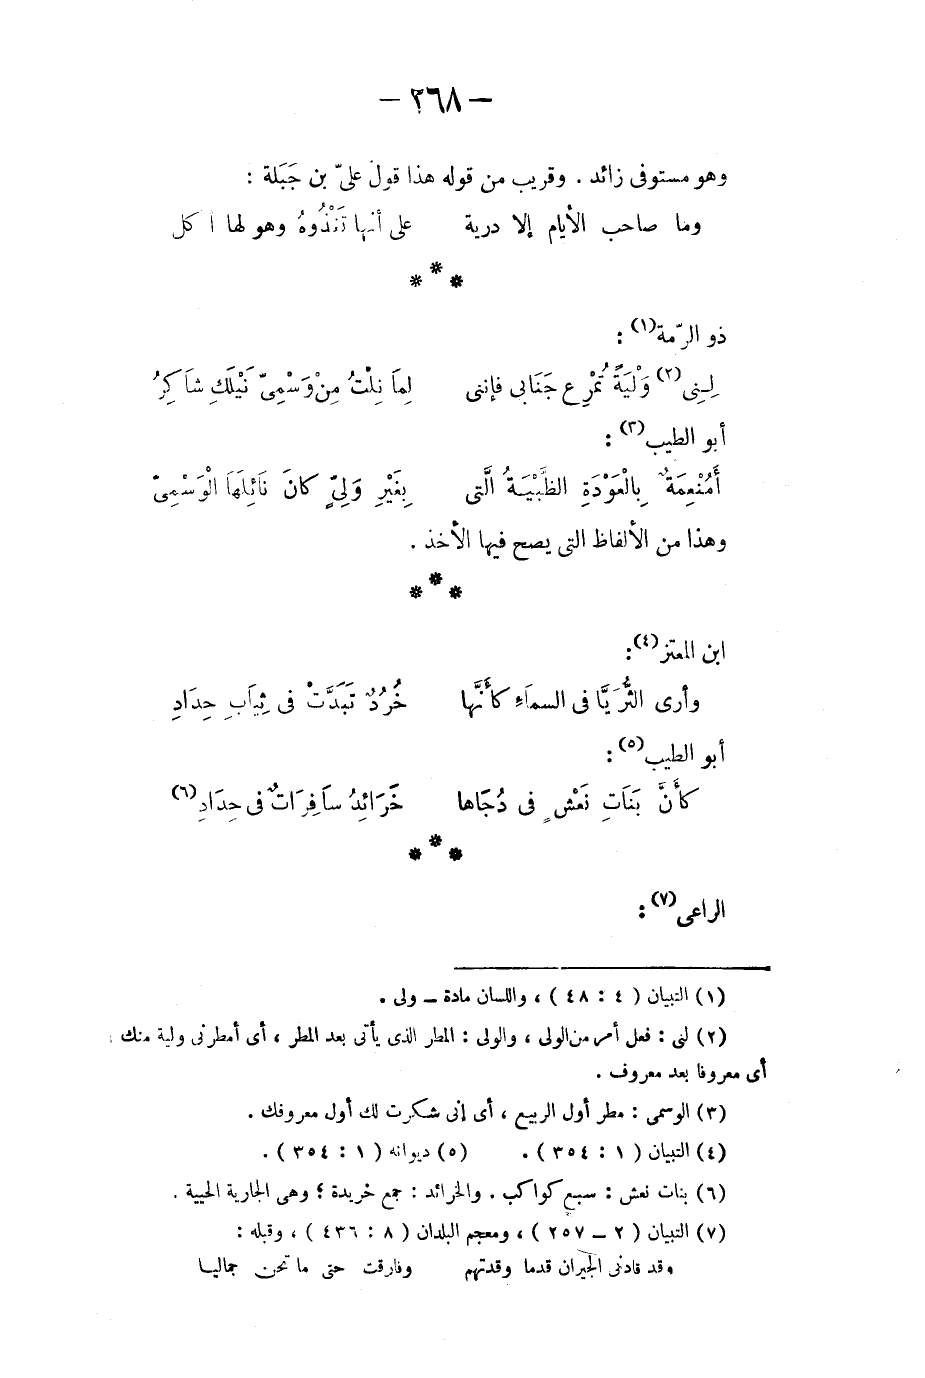 — ٢٦٨ —
وهو مستوفى زائد . وقريب من قوله هذا قول علىّ بن جَبَلة :
وما صاحب الأيام إلا درية على أنها تَغْذُوهُ وهو لها أكل
* * *
ذو الرّمة(١) :
لِـنِى(٢) وَلْيَةً تُمْرِع جَنَابى فإننى لِمَا نِلْتُ مِنْ وَسْمِىّ نَيْلَكِ شَاكِرُ
أبو الطيب(٣) :
أَمُنْعِمَةٌ بِالْعَوْدَةِ الظَّبْيَـةُ الَّتى بِغَيْرِ وَلِىٍّ كانَ نَائِلَهَا الْوَسْمِىّ
وهذا من الألفاظ التى يصح فيها الأخذ .
* * *
ابن المعتز(٤) :
وأرى الثُّرَيَّا فى السماَءِ كأَنَّها خُرُدٌ تَبَدَّتْ فى ثِيَابِ حِدَادِ
أبو الطيب(٥) :
كأَنَّ بَنَاتِ نَعْشٍ فى دُجَاها خَرَائِدُ سَافِرَاتٌ فى حِدَادِ(٦)
* * *
الراعى(٧) :
(١) التبيان ( ٤ : ٤٨ ) ، واللسان مادة ــ ولى .
(٢) لنى : فعل أمر من الولى ، والولى : المطر الذى يأتى بعد المطر ، أى أمطرنى ولية منك ،
أى معروفا بعد معروف .
(٣) الوسمى : مطر أول الربيع ، أى إنى شكرت لك أول معروفك .
(٤) التبيان ( ١ : ٣٥٤ ) . (٥) ديوانه ( ١ : ٣٥٤ ) .
(٦) بنات نعش : سبع كواكب . والخرائد : جمع خريدة ؛ وهى الجارية الحيية .
(٧) التبيان ( ٢ ــ ٢٥٧ ) ، ومعجم البلدان ( ٨ : ٤٣٦ ) ، وقبله :
وقد قادنى الجيران قدما وقدتهم وفارقت حتى ما تحن جماليـا